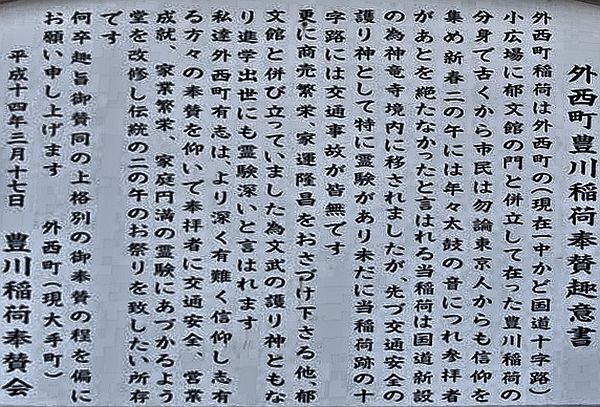 外西町豊川稲荷奉賛趣意書
外西町稲荷は外西町の(現在一中かど国道十字路)
小広場に郁文館の門と併立して在った豊川稲荷の
分身で古くから市民は勿論東京人からも信仰を
集め新春二の午には年々太鼓の音につれ参拝者
があとを絶たなかったと言はれる当稲荷は国道新設
の為神竜寺境内に移されましたが先づ交通安全の
護り神として特に霊験があり未だに当稲荷跡の十
字路には交通事故が皆無です
更に商売繁栄、家運隆昌をおさづけ下さる他、郁
文館と併び立っていました為文武の護り神ともな
り進学出世にも霊験深いと言はれます
私達外西町有志は、より深く有難く信仰し志有
る方々の奉賛を仰いで奉拝者に交通安全、営業
成就、家業繁栄、家庭円満の霊験にあづかるよう
堂を改修し伝統の二の午のお祭りを致したい所存
です
何卒趣旨御賛同の上格別の御奉賛の程を偏に
お願い申し上げます　外西町(現大手町)
平成十四年三月十七日　豊川稲荷奉賛会